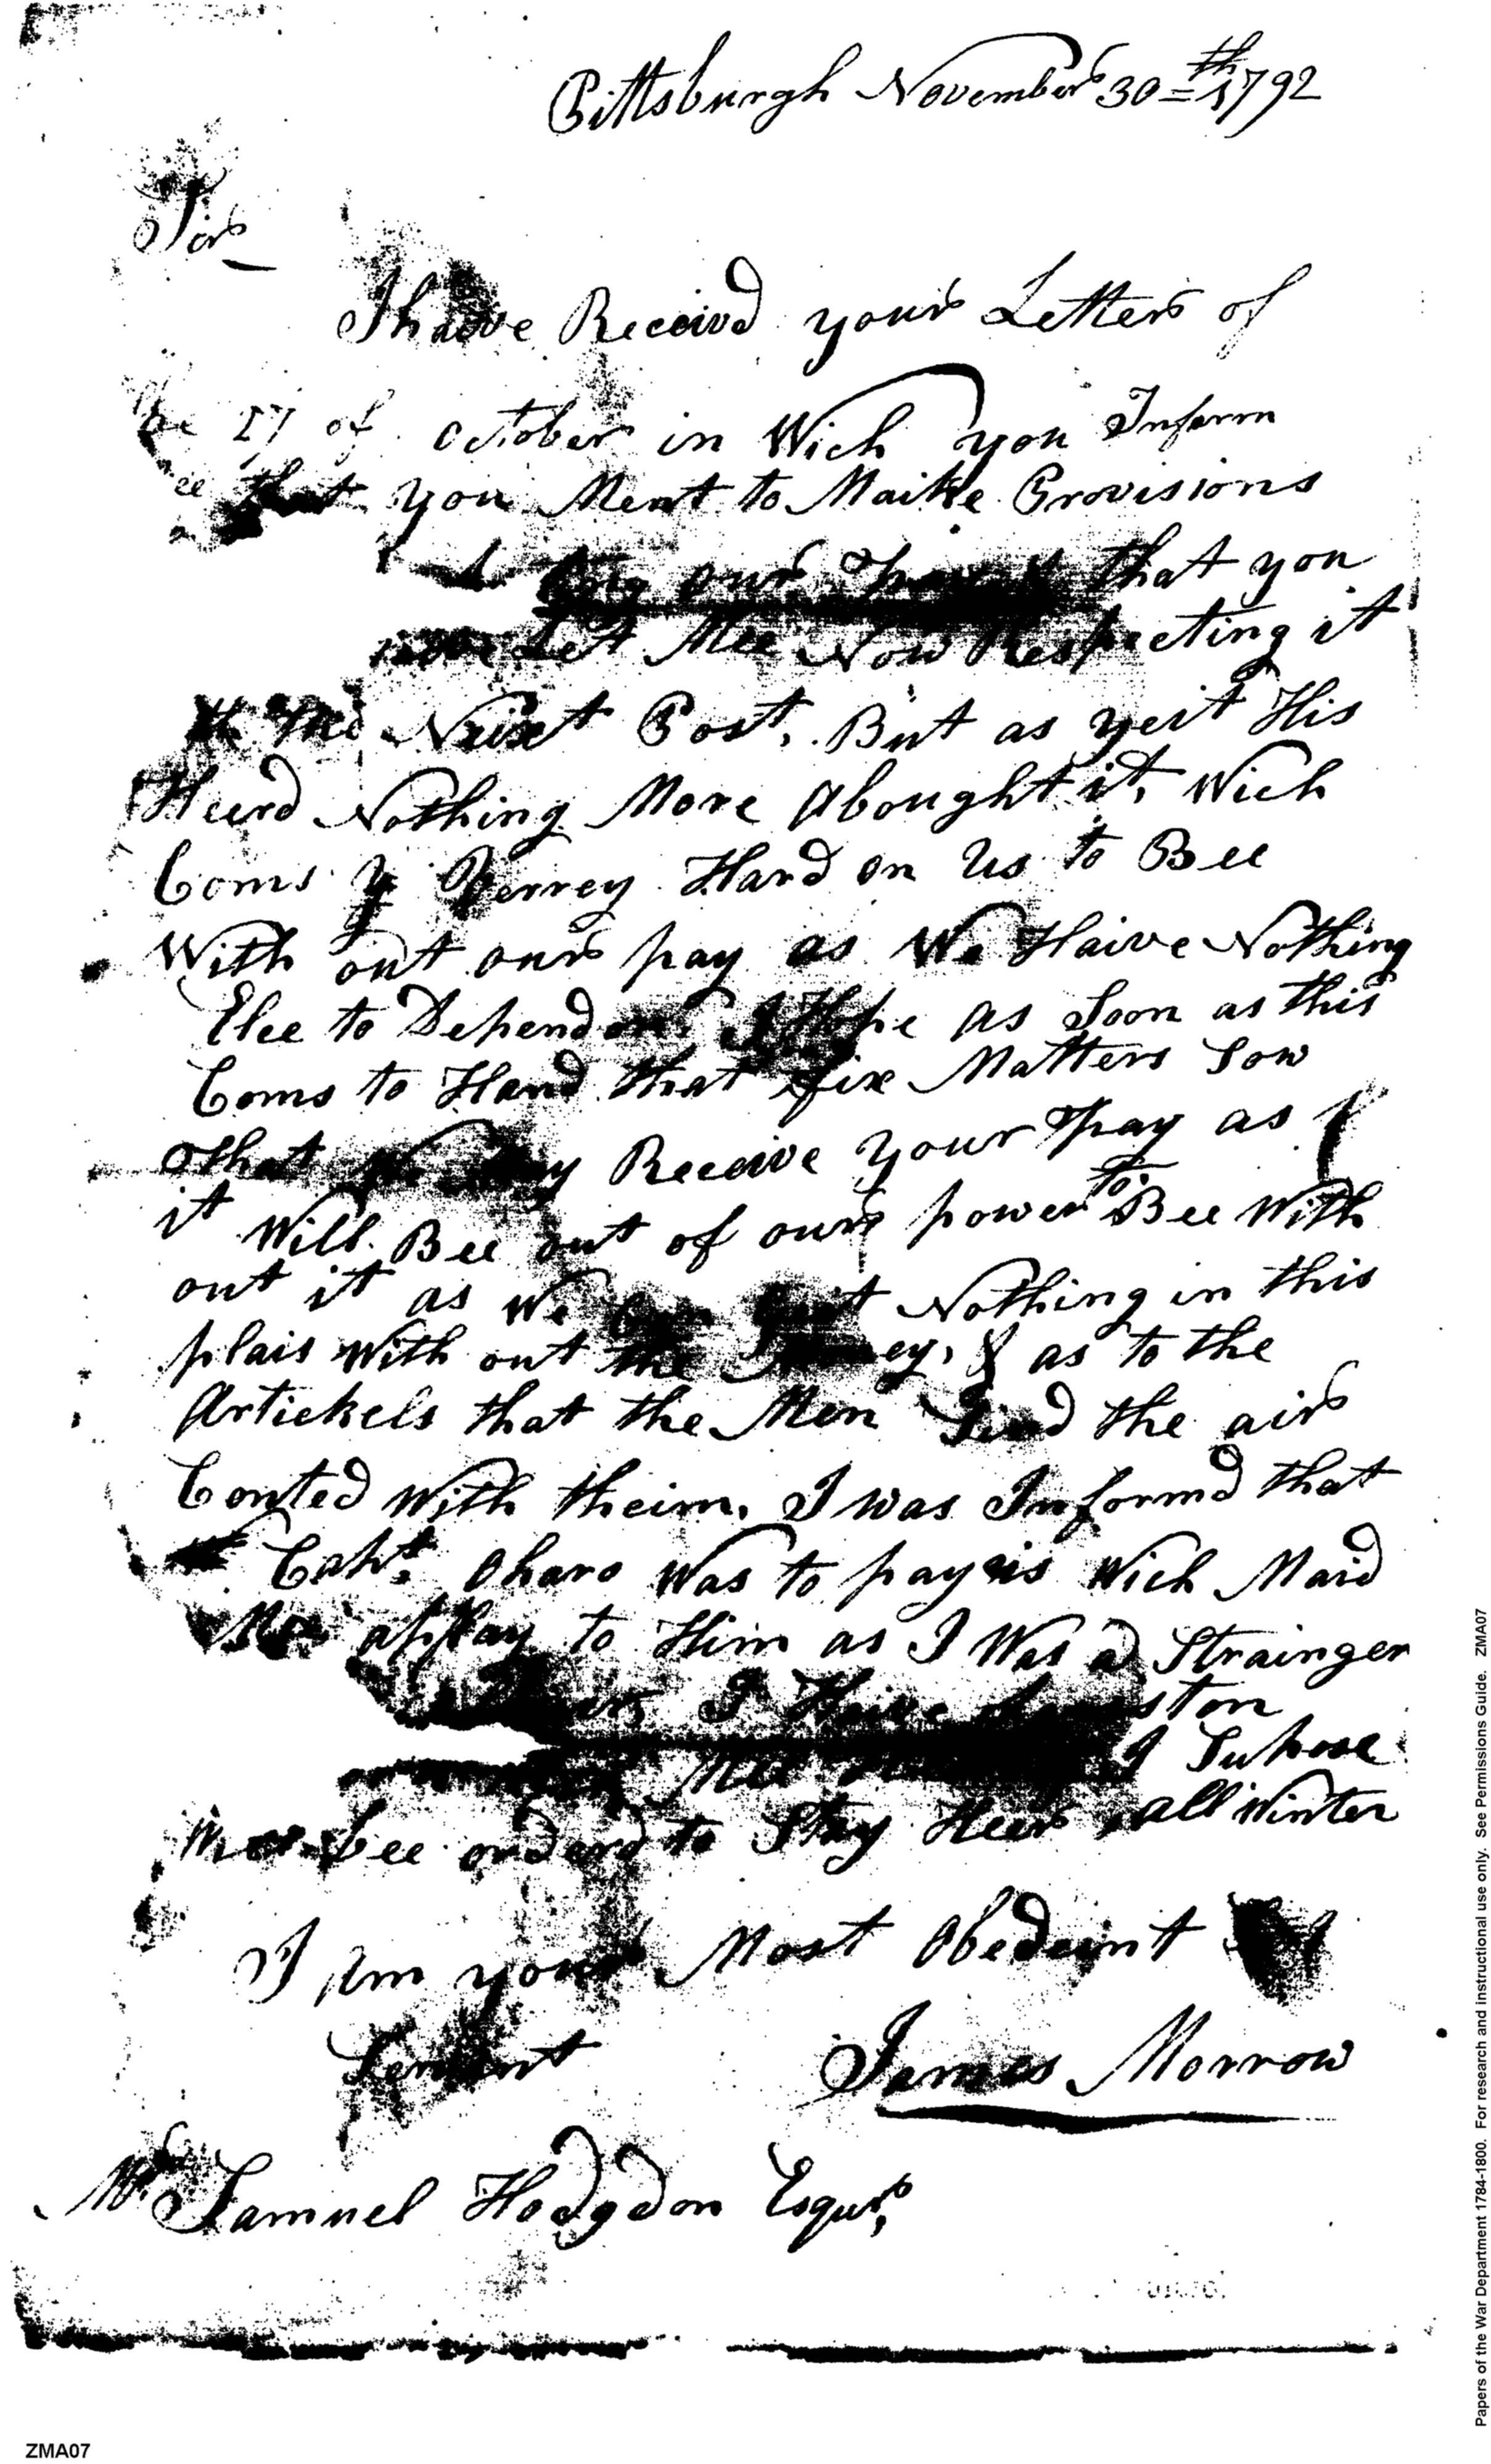 Pittsburgh November 30th 1792
Sir
I haive Receivd your Letter of
27 of october in Wich you Inform
that you Ment to Maike Provisions
our that you
Let Mee Now Respecting it
the Neixt Post, But as yeit His
Heerd Nothing More abought it, Wich
Coms Verrey Hard on Us to Bee
With out our pay as We Haive Nothing
Elce to Depend on. I Hope as Soon as this
Coms to Hand that fix Matters Sow
that We May Receive your pay as
it Will Bee out of our power to Bee With
out it as We Can Nothing in this
plais With out the Money, & as to the
Artickels that the Men the air
Conted with theim, I was Informd that
Capt. oharo Was to pay us Wich Maid
Mee applay to Him as I Was a Strainger
I Haive
Mee I Supose
bee orderd to Stay Heer all Winter
I Am your Most obedeint
Servant James Morrow
Mr. Samuel Hodgdon Esqur,
Papers of the War Department 1784-1800. For research and instructional use only. See Permissions Guide. ZMA07
ZMA07